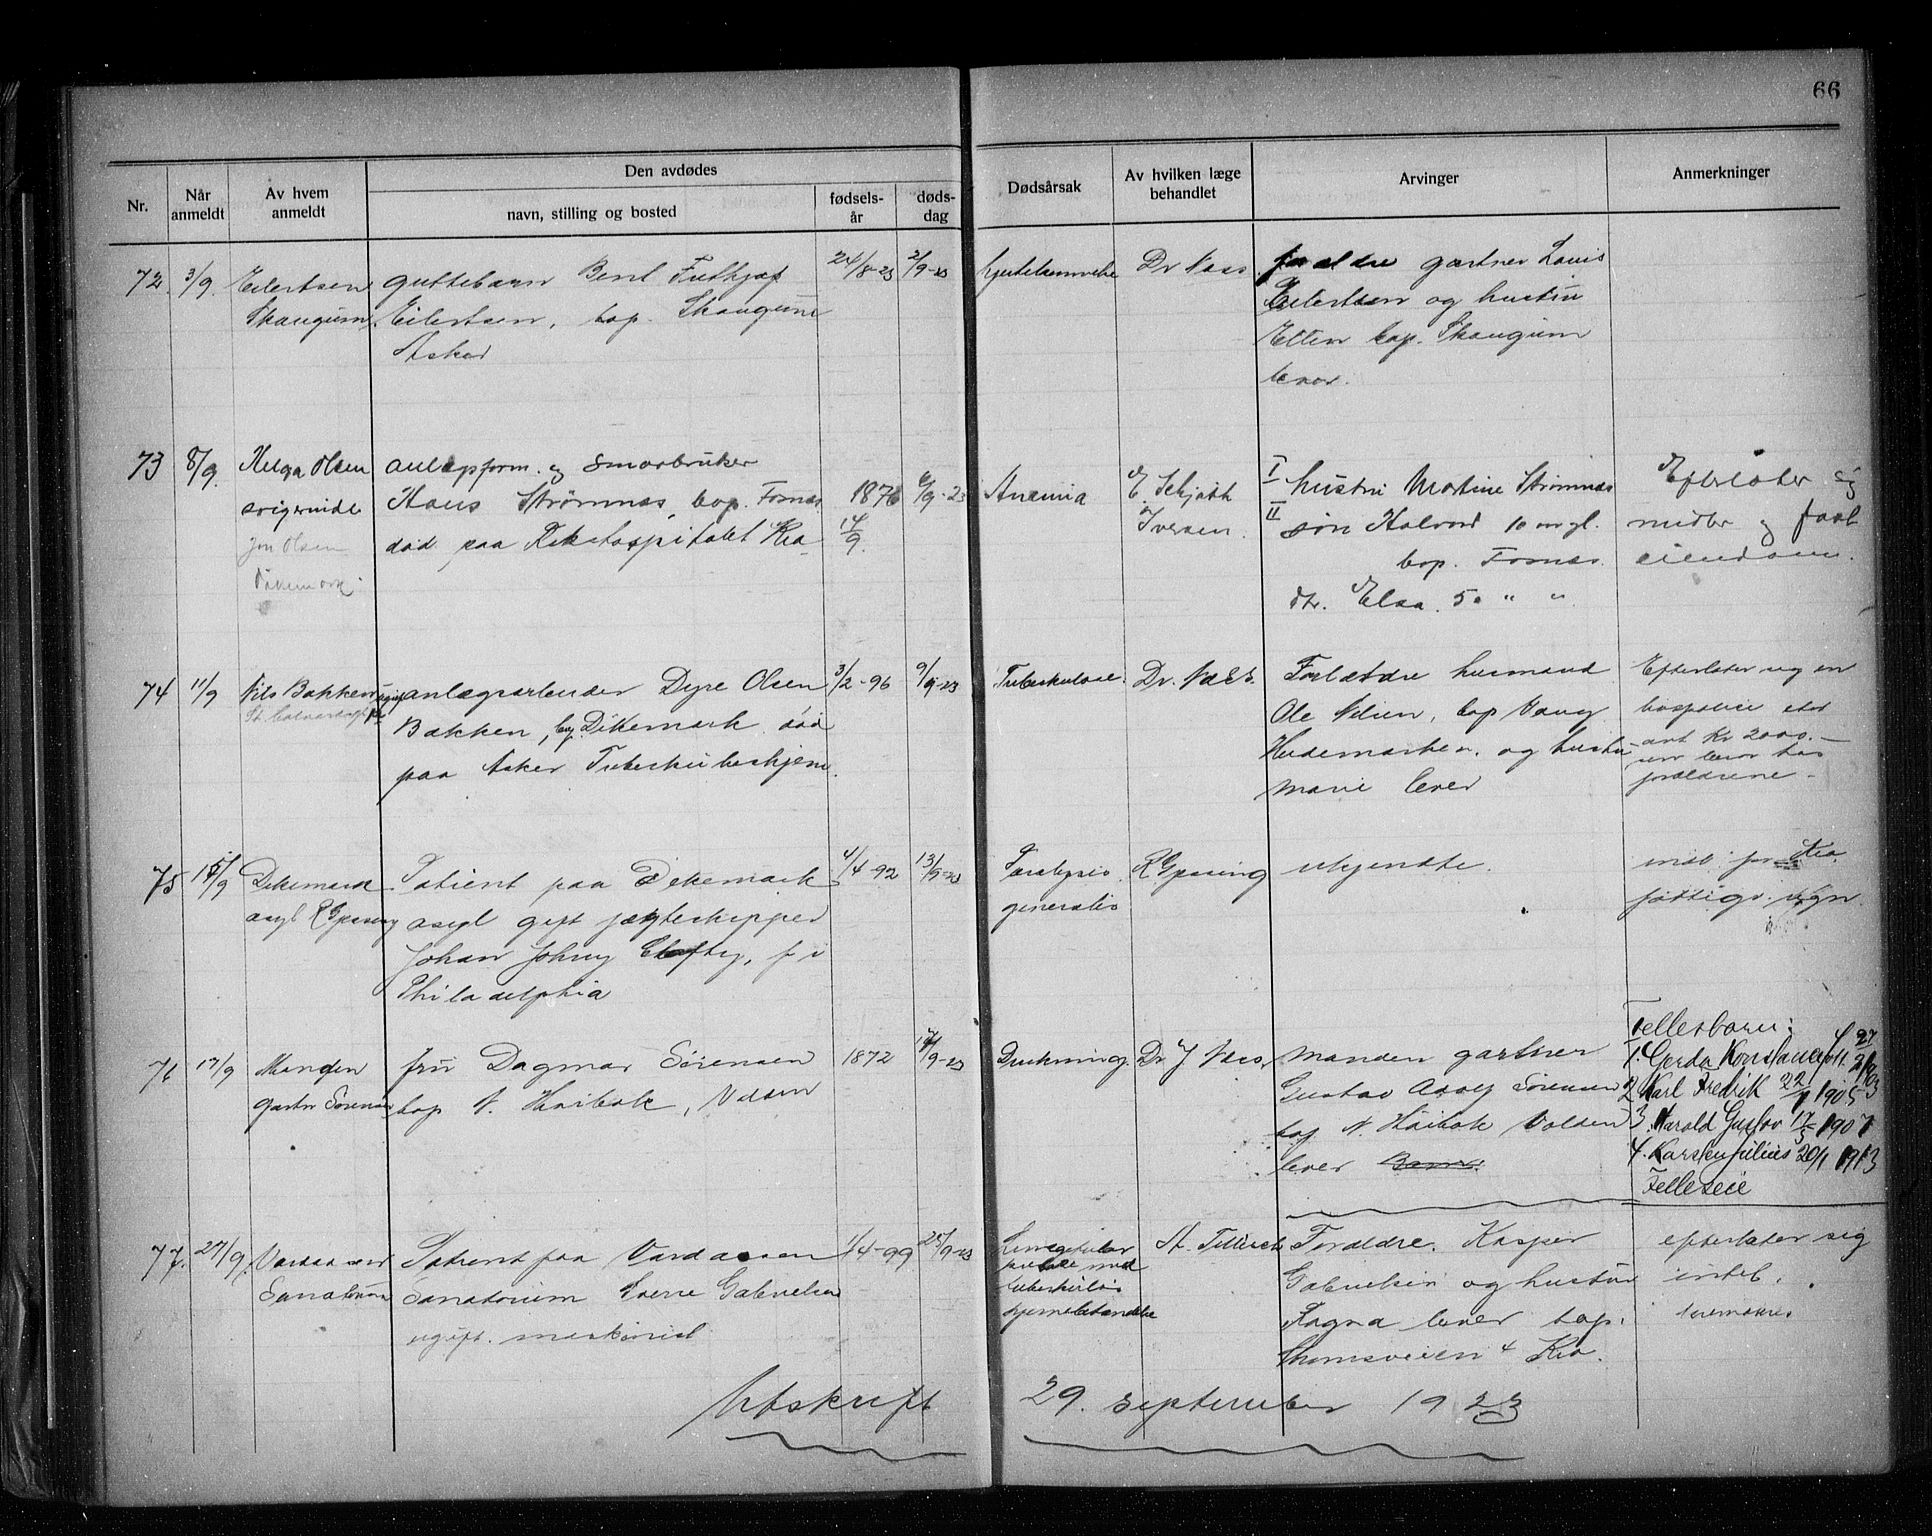 66
Nr.
Når anmeldt
Av hvem anmeldt
Den avdødes
navn, stilling og bosted
fødsels-år
døds-dag
Dødsårsak
Av hvilken læge behandlet
Arvinger
Anmerkninger
72. 3/9. Eilertsen
Skaugum
guttebarn Bent
Eilertsen, bop. Skaugum
Asker
24/8-23
2/9-23
Dr Næss
foreldre gartner Louis
Eilertsen og hustru
bop. Skaugum
lever.
73 8/9. Helga Olsen
svigerinde
Jon Olsen
Dikemark
anlegsform. og smaabruker
Hans Strømnes, bop. Fornes
død paa Rikshospitalet Kra.
1876
14/9.
6/9-23
Anemia
E. Schjøth
Iversen.
I hustru Martine Strømnes
II søn Halvord 10 aar gl.
bop. Fornes.
dtr. Elsa. 5 " "
Efterlater sig
midler og fast
eiendom.
74 11/9 Nils Bakken
anlægsarbeider Dyre Olsen
Bakken, Dikemark død
paa Asker Tuberkuleshjem.
3/2-96
9/9-23
Tuberkulose.
Dr. Næss.
Forældre husmand
Ole Nilsen, bop Vang
Hedemarken. og hustru
Marie lever
Efterlater sig en
ant Kr 2000.-
forældrene -
75 15/9 Dikemark
asyl R Gjessing
Patient paa Dikemark
asyl gift jægteskipper
Johan Johny f i
Philadelphia
4/4-92
13/9-23
Paralysis
generalis
R Gjessing
ukjendte.
for Kra.
fattigv.
76 17/9 Manden
gartn Sørensen
fru Dagmar Sørensen
bop N. Hvibak, Valsen
1872
14/9-23
Drukning.
Dr J Næss.
Manden gartner
Gustav Adolf Sørensen
bop N. Hvibak Valsen
lever
Fellesbarn:
1. Gerda Konstance
2 Karl Fredrik 22/1 1905
3. Harald Gustav 17/5 1907
4. Karsten Julius 20/1 1913
Felleseie
77. 27/9. Vardaasen
Sanatorium
Patient paa Vardaasen
Sanatorium Sverre Gabrielsen
ugift. maskinist
1/4-99
25/9-23
Lungetuber
kulose med
tuberkuløs
hjernebetændelse
A. Tillisch
Foreldre. Kasper
Gabrielsen og hustru
Ragna lever bop.
4 Kra.
efterlater sig
intet.
Utskrift 29. september 1923